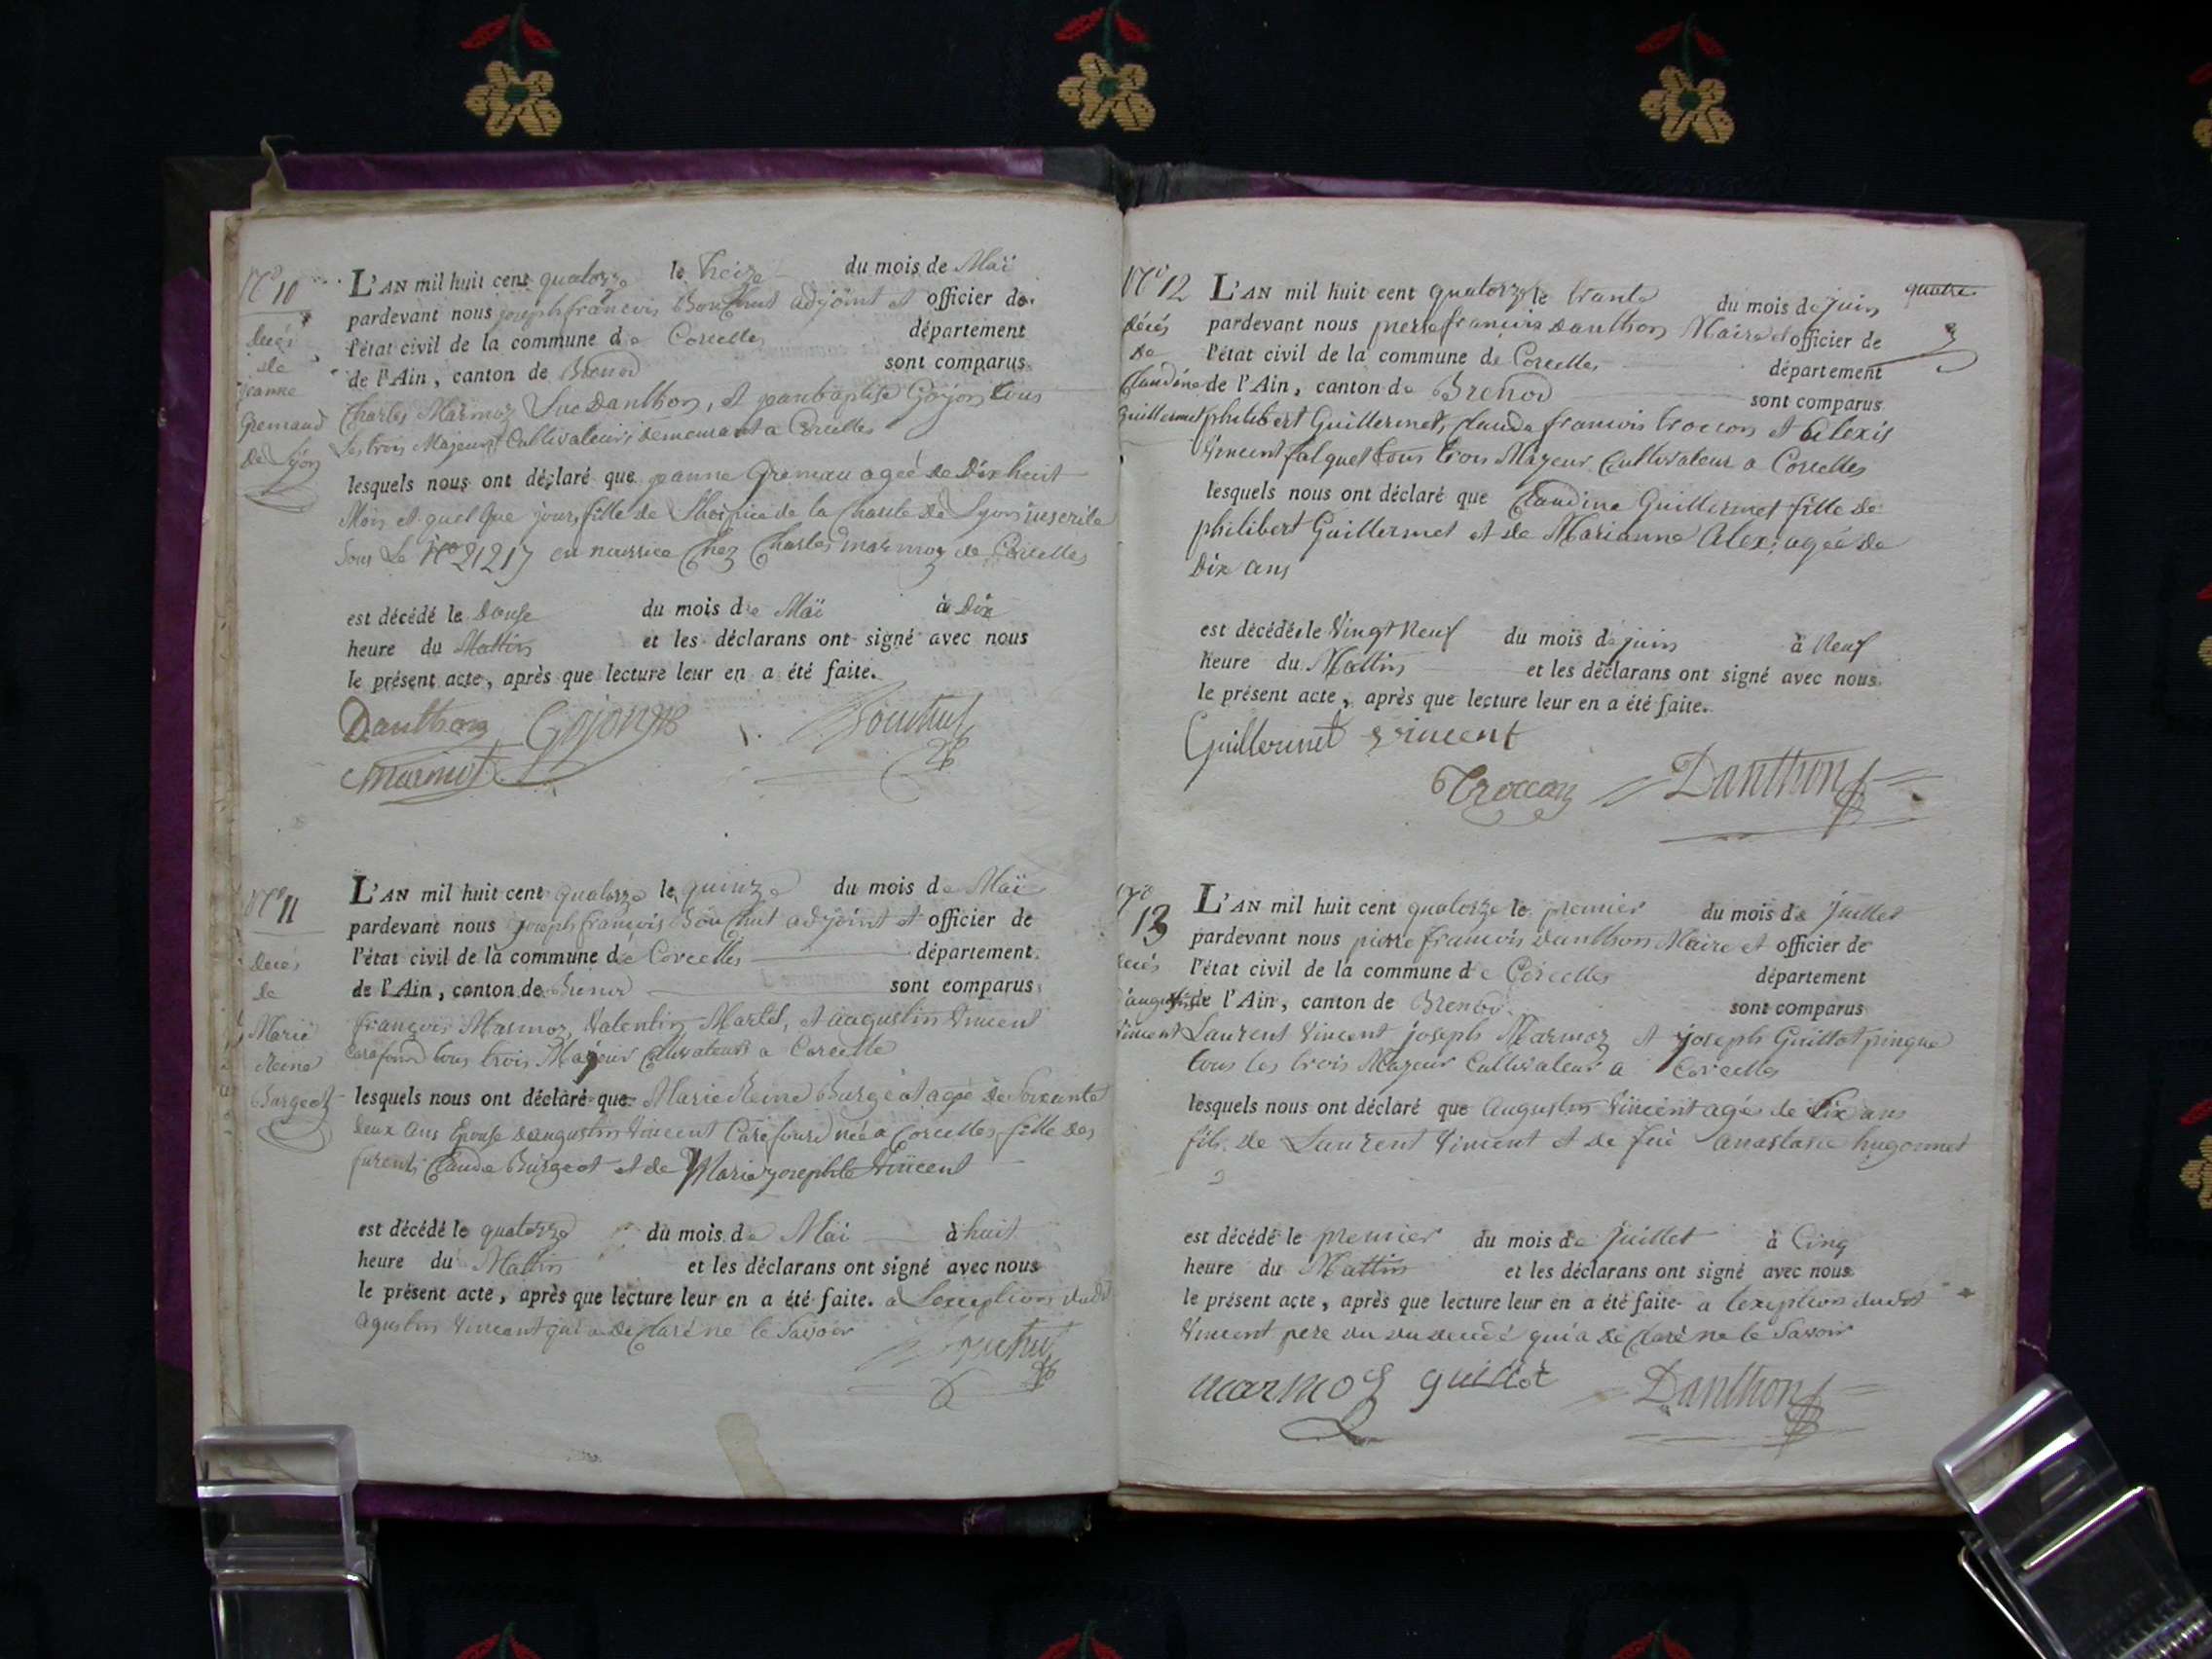 N° 10
décès
de
jeanne
Gremaud
De Lyon
L'AN mil huit cent quatorze le treize du mois de Maï
pardevant nous joseph françois Bouchut adjoint et officier de
l'état civil de la commune de Corcelles département
de l'Ain, canton de Brenod sont comparus
Charles Marmoz Luc Danthon, et jean baptiste Gojon tous
les trois Majeurs Cultivateurs demeurant a Corcelles
lesquels nous ont déclaré que jeanne Gremau agée de Dix huit
Mois et quelque jours fille de l'hospice de la Charité de Lyon inscrite
Sous Le N° 21217 en nourrice Chez Charles marmoz de Corcelles
est décédé le Douse du mois de Maï à Dix
heure du Mattin et les déclarans ont signé avec nous
le présent acte, après que lecture leur en a été faite.
Danthon Gojon Bouchut
N° 11
Décès
de
Marie
Reine
Burgeot
L'AN mil huit cent quatorze le quinze du mois de Maï
pardevant nous joseph françois Bouchut adjoint et officier de
l'état civil de la commune de Corcelles département
de l'Ain, canton de Brenod sont comparus
françois Marmoz, Valentin Martel, et augustin Vincent
Carefour tous trois Majeur Cultivateurs a Corcelle
lesquels nous ont déclaré que Marie Reine Burgeot agée de Soixante
deux ans Epouse d'augustin Vincent Carefourd née a Corcelles fille des
furent Claude Burgeot et de Marie josephte Vincent
est décédé le quatorze du mois de Maï à huit
heure du Mattin et les déclarans ont signé avec nous
le présent acte, après que lecture leur en a été faite. a L'exeption dudit
agustin Vincent qui a déclaré ne le Savoir
Bouchut
quatre
N° 12
décès
De
Claudine
Guillermet
L'AN mil huit cent quatorze le trante du mois de juin
pardevant nous pierre françois Danthon Maire et officier de
l'état civil de la commune de Corcelles département
de l'Ain, canton de Brenod sont comparus
philibert Guillermet, claude francois troccon et alexis
Vincent falquet tous trois Majeur Cultivateur a Corcelles
lesquels nous ont déclaré que Claudine Guillermet fille de
philibert Guillermet et de Marianne Alex, agée de
Dix ans
est décédée le Vingt Neuf du mois de juin à Neuf
heure du Mattin et les déclarans ont signé avec nous
le présent acte, après que lecture leur en a été faite.
Guillermet vincent
Troccon Danthon
N°
13
décès
d'augustin
Vincent
L'AN mil huit cent quatorze le premier du mois de Juillet
pardevant nous pierre francois danthon Maire et officier de
l'état civil de la commune de Corcelles département
de l'Ain, canton de Brenod sont comparus
Laurent Vincent joseph Marmoz et joseph Guillot pingue
tous les trois Majeur Cultivateur a Corcelles
lesquels nous ont déclaré que Augustin Vincent agé de Six ans
fils de Laurent Vincent et de feüe anastasie hugonnet
est décédé le premier du mois de Juillet à Cinq
heure du Mattin et les déclarans ont signé avec nous
le présent acte, après que lecture leur en a été faite a l'exeption dudit
Vincent pere du dudecedé qui a declaré ne le Savoir
marmoz guillot Danthon